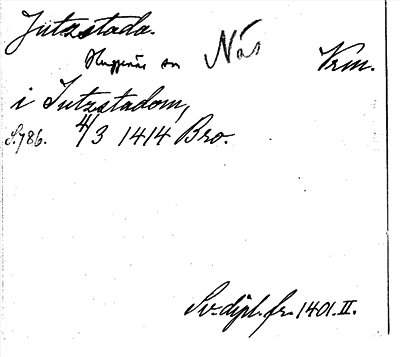 Jutzstada.
sn Näs Vrm.
i Jutzstadom,
S.786. 4/3 1414 Bro.
Sv. dipl. fr. 1401. II.